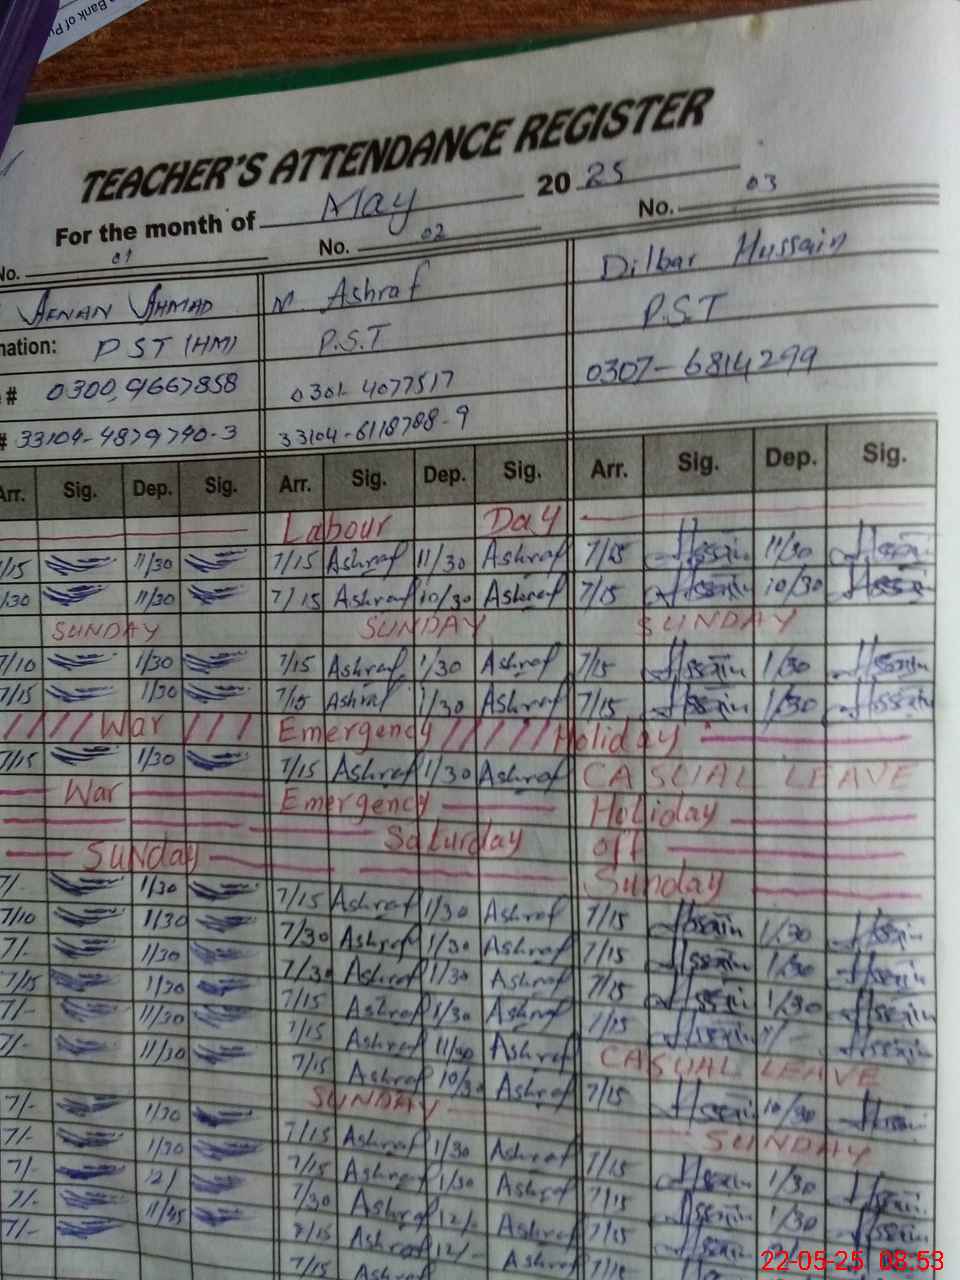 Bank of Pu
TEACHER'S ATTENDANCE REGISTER
For the month of May 2025
No. 01 No. 02 No. 03
AFNAN AHMAD M. Ashraf Dilbar Hussain
nation: PST (HM) P.S.T P.S.T
# 0300,9667858 0301-4077517 0307-6814299
# 33104-4879740-3 33104-6118788-9
Arr. Sig. Dep. Sig. Arr. Sig. Dep. Sig. Arr. Sig. Dep. Sig.
Labour Day
7/15 11/30 7/15 Ashraf 11/30 Ashraf 7/15 Hssain 11/30 Hssain
/30 11/30 7/15 Ashraf 10/30 Ashraf 7/15 Hssain 10/30 Hssain
SUNDAY SUNDAY SUNDAY
7/10 1/30 7/15 Ashraf 1/30 Ashraf 7/15 Hssain 1/30 Hssain
7/15 1/30 7/15 Ashraf 1/30 Ashraf 7/15 Hssain 1/30 Hssain
War Emergency Holiday
7/15 1/30 7/15 Ashraf 1/30 Ashraf CASUAL LEAVE
War Emergency Holiday
Saturday off
Sunday Sunday
7/- 1/30 7/15 Ashraf 1/30 Ashraf 7/15 Hssain 1/30 Hssain
7/10 1/30 7/30 Ashraf 1/30 Ashraf 7/15 Hssain 1/30 Hssain
7/- 1/30 7/30 Ashraf 1/30 Ashraf 7/15 Hssain 1/30 Hssain
7/15 1/30 7/15 Ashraf 1/30 Ashraf 7/15 Hssain Hssain
7/- 11/30 7/15 Ashraf 11/30 Ashraf CASUAL LEAVE
7/- 11/30 7/15 Ashraf 10/30 Ashraf 7/15 Hssain 10/30 Hssain
SUNDAY SUNDAY
7/- 1/30 7/15 Ashraf 1/30 Ashraf 7/15 Hssain 1/30 Hssain
7/- 1/30 7/15 Ashraf 1/30 Ashraf 7/15 Hssain 1/30 Hssain
7/- 12/ 7/30 Ashraf 12/- Ashraf 7/15 Hssain
7/- 11/45 7/15 Ashraf 12/- Ashraf 7/15
7/- 7/15 Ashraf
22-05-25 08:53